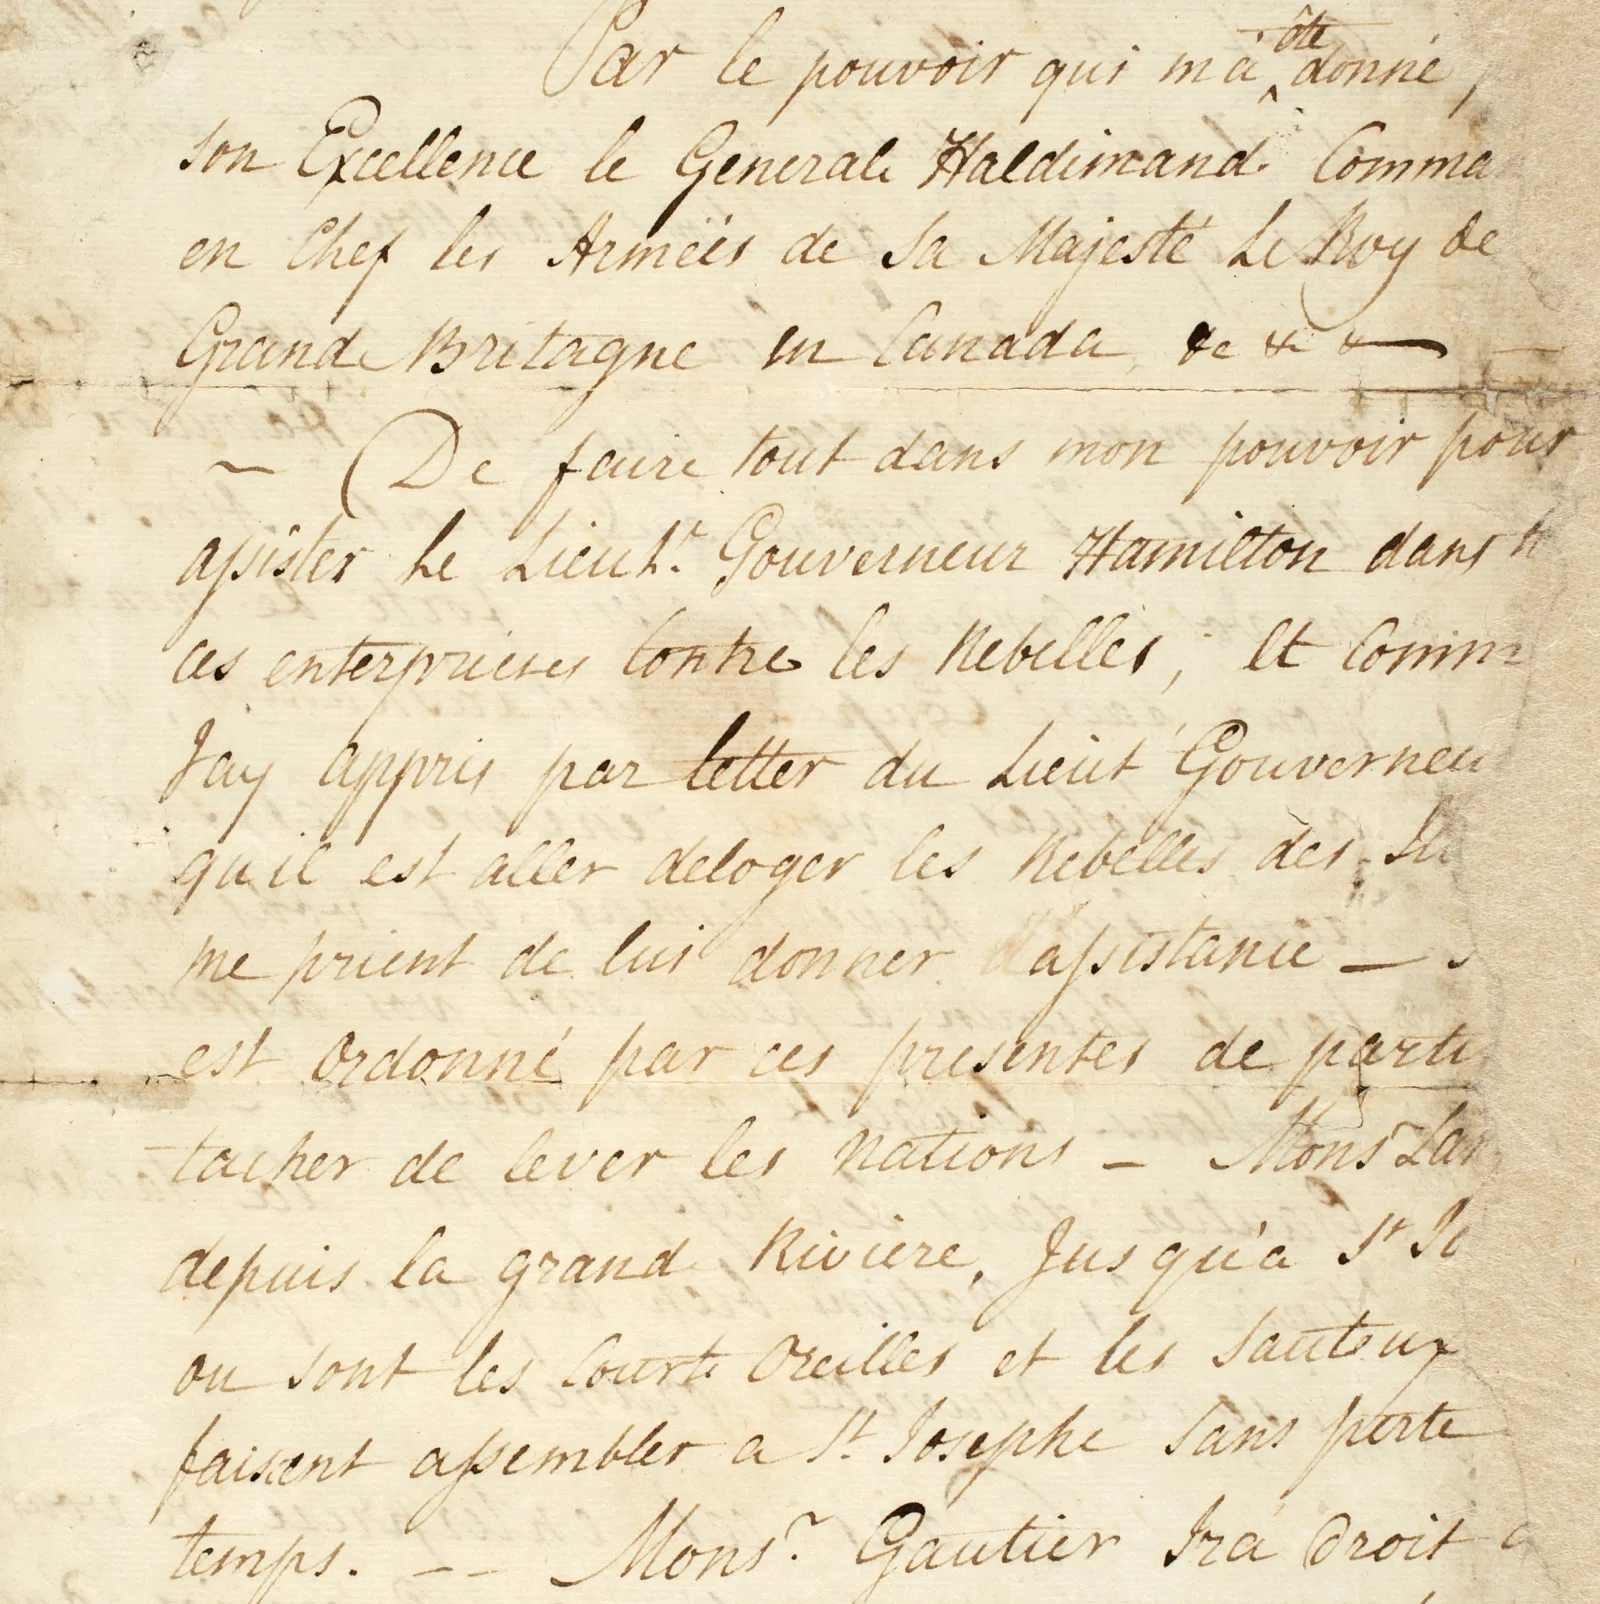 Par le pouvoir qui m'a ôte donné
son Excellence le General Haldimand Comma
en Chef les Armëes de sa Majesté Le Roy de
Grande Britagne en Canada &c &c &c
~ De faire tout dans mon pouvoir pour
assister Le Lieut.r Gouverneur Hamilton dans
ces enterprises Contre les Rebelles, Et Comm
Jay appris par letter du Lieut Gouverneu
qu il est aller deloger les Rebelles des
me prient de lui donner dassistance —
est Ordonné par ces presentes de parti
tacher de lever les Nations — Mons.r Lan
depuis la grande Riviere, Jusqu'a St Jo
ou sont les Courte Oreilles et les Sauteux
faisent assembler a St. Josephe sans perte
temps. — — Mons.r Gautier Ira Droit